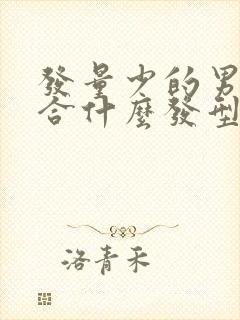 發量少的男
合什麼發型
洛青禾